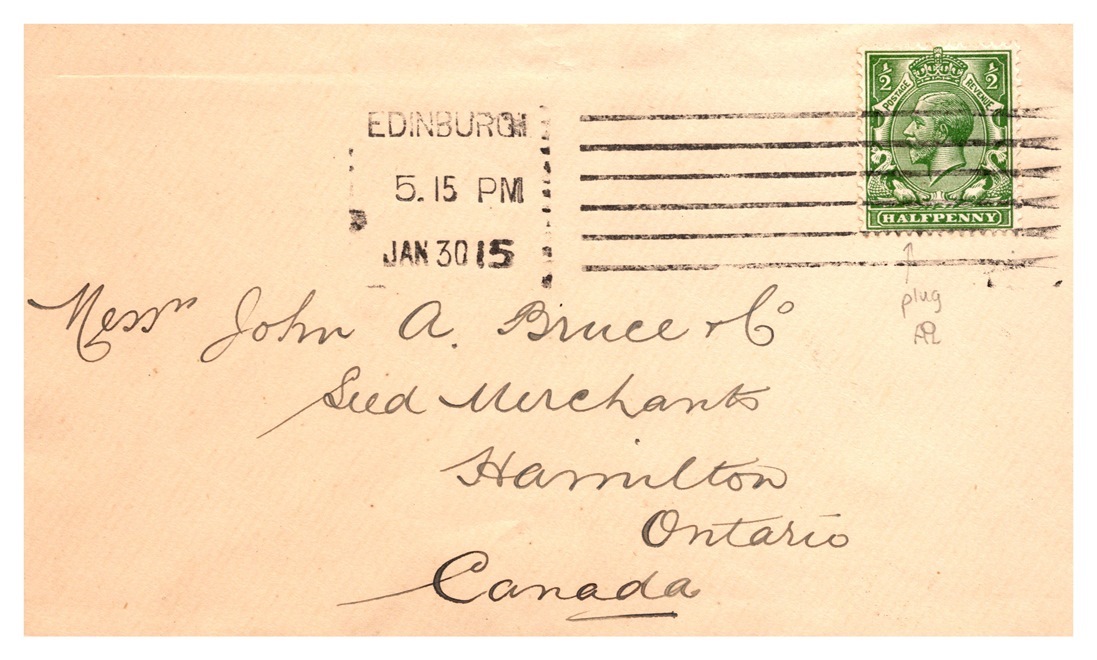 ½ ½
POSTAGE REVENUE
HALFPENNY
EDINBURGH
5. 15 PM
JAN 30 15
plug
Messrs John A. Bruce & Co
Seed Merchants
Hamilton
Ontario
Canada